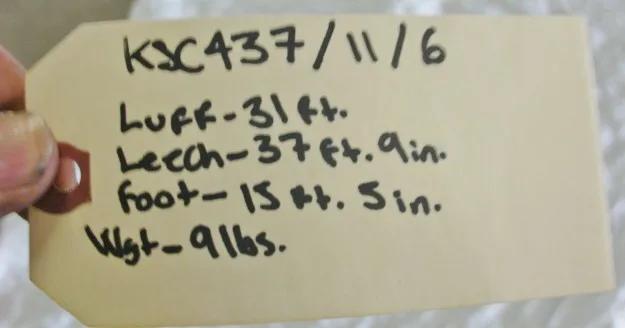 KSC437/11/6
Luff-31 ft.
Leech-37 ft. 9in.
foot-15 ft. 5in.
Wgt-9lbs.